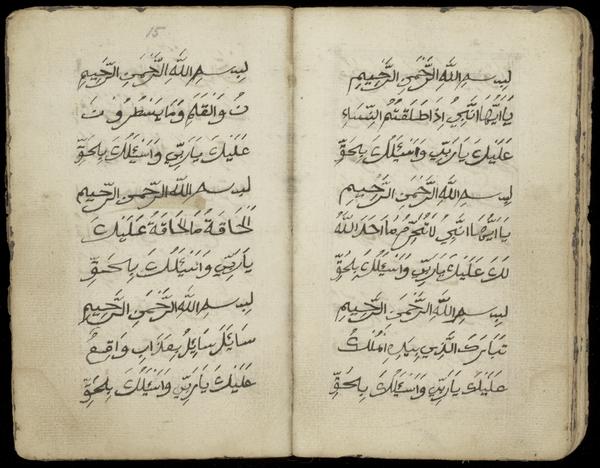 بِسْمِ اللَّهِ الرَّحْمَنِ الرَّحِيمِ
يَا اَيُّهَا النَّبِيُ اِذَا طَلَقْتُمُ النِّسَاءِ
عَلَيْكَ يَارَبِّي وَاَسْئَلُكَ بِلحَقِّ
بِسْمِ اللَّهِ الرَّحْمَنِ الرَّحِيمِ
يَا اَيُّهَا النَّبِيُ لاتُحَرِّمُ مَا اَحَلَ اللَّهُ
لَكَ عَلَيْكَ يَارَبِّي وَاَسْئَلُكَ بِلحَقِّ
بِسْمِ اللَّهِ الرَّحْمَنِ الرَّحِيمِ
تَبَارَكَ الَّذِي بِيَدِهِ اَلمُلْكُ
عَلَيْكَ يَارَبِّي وَاَسْئَلُكَ بِلحَقِّ
15
بِسْمِ اللَّهِ الرَّحْمَنِ الرَّحِيمِ
نُ وَالْقَلَمِ وَمَا يَسْطُرُونَ
عَلَيْكَ يَارَبِّي وَاَسْئَلُكَ بِلحَقِّ
بِسْمِ اللَّهِ الرَّحْمَنِ الرَّحِيمِ
اَلْحَاقَةُ مَالحَاقَةُ عَلَيْكَ
يَارَبِّي وَاَسْئَلُكَ بِلحَقِّ
بِسْمِ اللَّهِ الرَّحْمَنِ الرَّحِيمِ
سَاَئَلَ سَايِلُ بِعَذَابٍ وَاقِعٍ
عَلَيْكَ يَارَبِّي وَاَسْئَلُكَ بِلحَقِّ